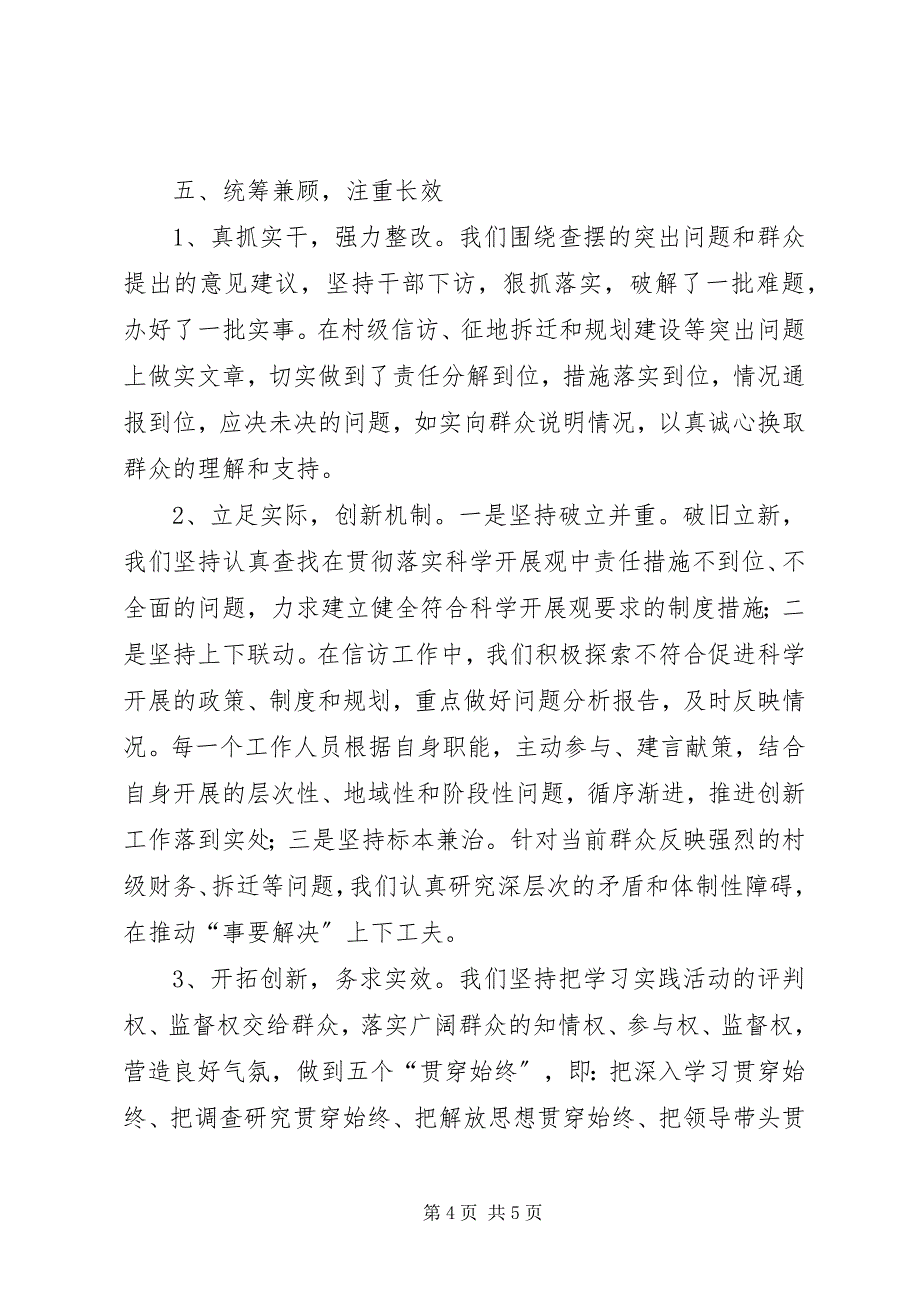 五、统筹兼顾，注重长效
1、真抓实干，强力整改。我们围绕查摆的突出问题和群众
提出的意见建议，坚持干部下访，狠抓落实，破解了一批难题，
办好了一批实事。在村级信访、征地拆迁和规划建设等突出问题
上做实文章，切实做到了责任分解到位，措施落实到位，情况通
报到位，应决未决的问题，如实向群众说明情况，以真诚心换取
群众的理解和支持。
2、立足实际，创新机制。一是坚持破立并重。破旧立新，
我们坚持认真查找在贯彻落实科学开展观中责任措施不到位、不
全面的问题，力求建立健全符合科学开展观要求的制度措施；二
是坚持上下联动。在信访工作中，我们积极探索不符合促进科学
开展的政策、制度和规划，重点做好问题分析报告，及时反映情
况。每一个工作人员根据自身职能，主动参与、建言献策，结合
自身开展的层次性、地域性和阶段性问题，循序渐进，推进创新
工作落到实处；三是坚持标本兼治。针对当前群众反映强烈的村
级财务、拆迁等问题，我们认真研究深层次的矛盾和体制性障碍，
在推动“事要解决〞上下工夫。
3、开拓创新，务求实效。我们坚持把学习实践活动的评判
权、监督权交给群众，落实广阔群众的知情权、参与权、监督权，
营造良好气氛，做到五个“贯穿始终〞，即：把深入学习贯穿始
终、把调查研究贯穿始终、把解放思想贯穿始终、把领导带头贯
第4页 共5页